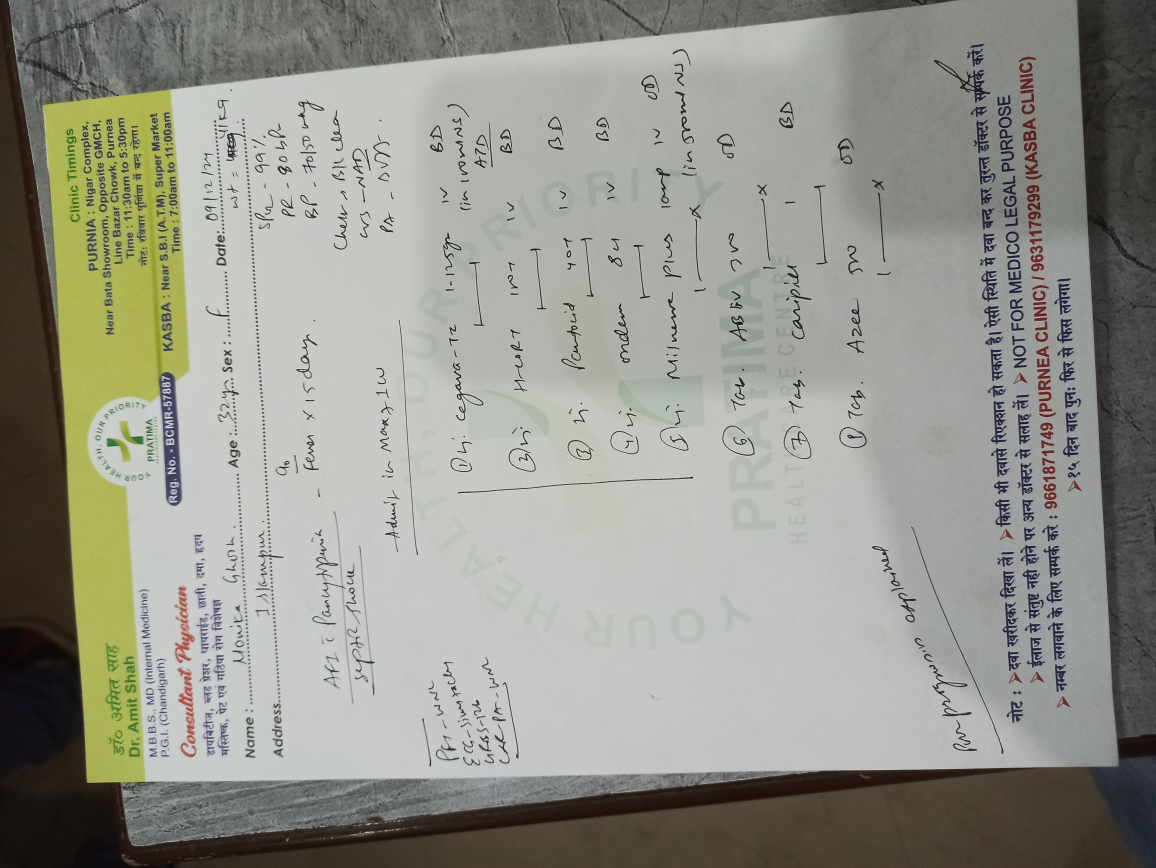 डॉ० अमित साह
Dr. Amit Shah
M.B.B.S., MD (Internal Medicine)
P.G.I. (Chandigarh)
Consultant Physician
डायबिटीज, ब्लड प्रेशर, थायराईड, छाती, दमा, हृदय
मस्तिष्क, पेट एवं गठिया रोग विशेषज्ञ
YOUR HEALTH, OUR PRIORITY
PRATIMA
Reg. No. - BCMR-57887
Clinic Timings
PURNIA : Nigar Complex,
Near Bata Showroom, Opposite GMCH,
Line Bazar Chowk, Purnea
Time : 11:30am to 5:30pm
नोट: रविवार पूर्णिया में बन्द रहेगा।
KASBA : Near S.B.I (A.T.M), Super Market
Time : 7:00am to 11:00am
Name : Monika Ghosh Age 32yr Sex : F Date: 09/12/24
Address Islampur wt = 41kg.
c/o
AFI c Pancytopenia - Fever x 15 day.
septic shock
SPO2 - 99%
PR - 80 bpm
BP - 70/50 mmhg
Chest → B/L clear
CVS - NAD
PA -
Admit in
PFT - WNL
CXR PA - WNL
① Inj. 1.125gm IV BD
(in 100ml NS)
② Inj. HCORT 100 IV BD
③ Inj. Pantocid 40 IV BD
④ Inj. ondem 8 IV BD
⑤ Inj. Milneme plus 1amp IV OD
(in 500ml NS)
⑥ Tab. OD
⑦ Tab. caripill 1 BD
Tab. Azee 500 OD
Poor prognosis explained
YOUR HEALTH, OUR PRIORITY
PRATIMA
HEALTH CARE CENTRE
नोट : ➤ दवा खरीदकर दिखा लें। ➤ किसी भी दवासे रिएक्शन हो सकता है। ऐसी स्थिति में दवा बन्द कर तुरन्त डॉक्टर से सम्पर्क करें।
➤ ईलाज से संतुष्ट नही होने पर अन्य डॉक्टर से सलाह लें। ➤ NOT FOR MEDICO LEGAL PURPOSE
➤ नम्बर लगवाने के लिए सम्पर्क करे : 9661871749 (PURNEA CLINIC) / 9631179299 (KASBA CLINIC)
➤ १५ दिन बाद पुन: फिर से फिस लगेगा।